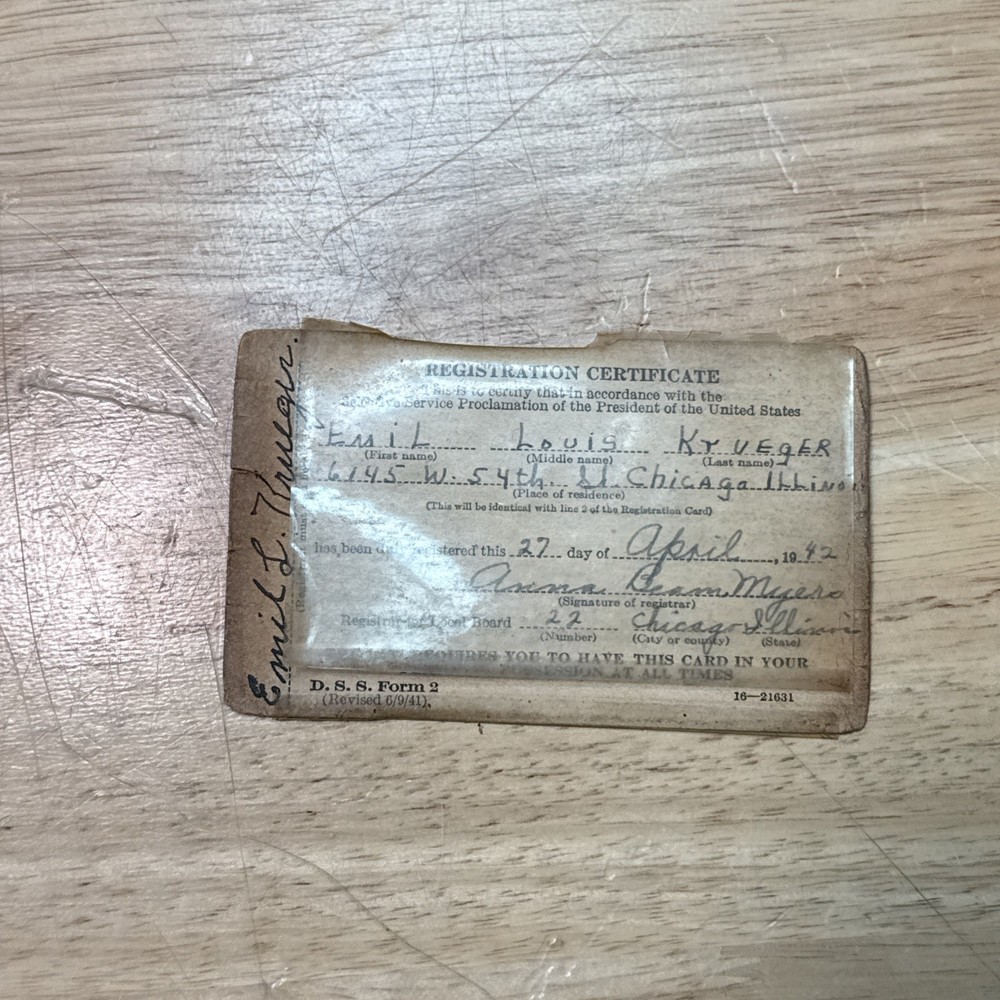 REGISTRATION CERTIFICATE
This is to certify that in accordance with the
Selective Service Proclamation of the President of the United States
EmiL Louis KrUEgER
(First name) (Middle name) (Last name)
6145 W. 54th. St. Chicago Illinois
(Place of residence)
(This will be identical with line 2 of the Registration Card)
has been duly registered this 27 day of April, 1942
Anna Beam Myers
(Signature of registrar)
Registrar for Local Board 22 Chicago Illinois
(Number) (City or county) (State)
REQUIRES YOU TO HAVE THIS CARD IN YOUR
POSSESSION AT ALL TIMES
D. S. S. Form 2
(Revised 6/9/41)
16—21631
Emil L. Krueger.